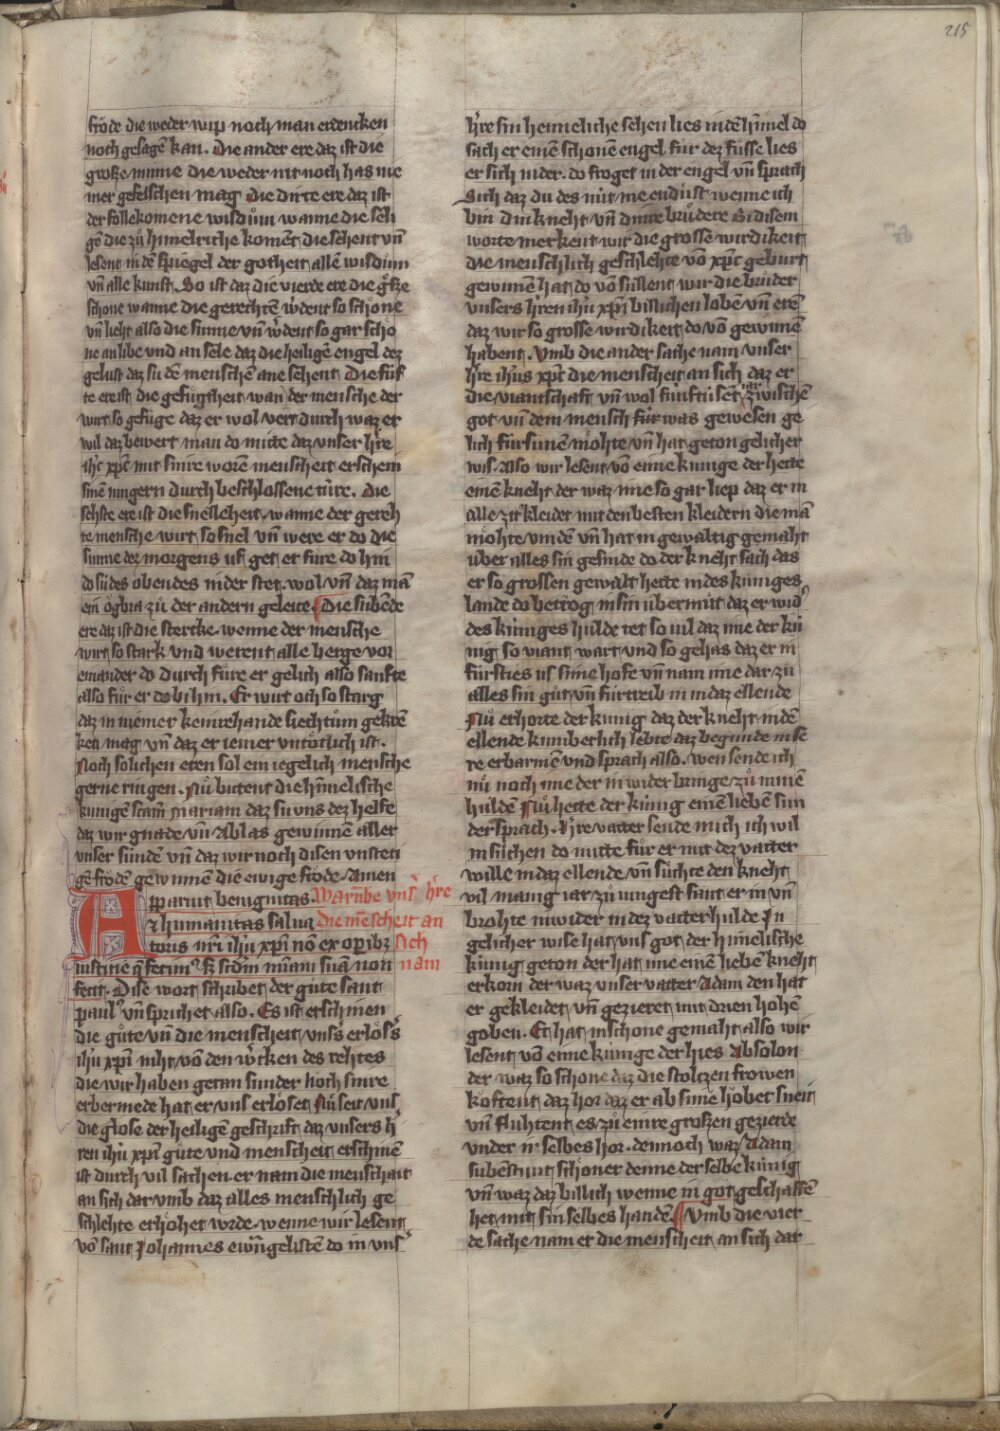 215
fröde die weder wip noch man erdencken
noch gesagē kan. Die ander ere daz ist die
grosze minne die weder nit noch has nie
mer gefelschen mag Die dirte ere daz ist
der follekomene wisdům wanne die seli
gē die zů himelriche komēt die sehent vn̄
lesent in dē spiegel der gotheit allē wisdům
vn̄ alle kunst. So ist daz die vierde ere die grösze
schone wanne die gerechtē w̄dent so schone
vn̄ lieht also die sunne vn̄ w̄dent so gar schö
ne an libe vnd an sele daz die heiligē engel dez
gelust daz su dē menschē ane sehent Die fúf
te ere ist die gefůgtheit wan̄ der mensche der
wirt so gefuge daz er wol vert durch waz er
wil daz bewert man do mitte daz vnser h̄re
ih̄c xp̄c mit sinre woren menscheit erschein
sinē iungern durch beschlossene túre. Die
sehste ere ist die snelcheit wanne der gereh
te mensche wirt so snel vn̄ were er do die
sunne dez morgens uf get er fure do hin
do su des obendes nider stet wol vn̄ daz mā
ein ögbra zů der andern geleite. Die sübende
ere daz ist die stercke wenne der mensche
wirt so stark vnd werent alle berge vor
einander do durch füre er gelich also sanfte
also fůr er do bi hin. Er wirt och so starg
daz in niemer keinrehande siechtům gekrē
ken mag vn̄ daz er iemer vntötlich ist.
Noch solichen eren sol ein iegelich mensche
gerne ringen. Nů bittent die him̄elische
kunigē scām Mariam daz si vns dez helfe
daz wir gnade vn̄ Ablas gewinnē aller
vnser sündē vn̄ daz wir noch disen vnsteti
gē frödē gewinnen die ewige fröde Amen
Apparuit benignitas Warūbe vns' h̄re
& humanitas salua die mēscheit an
toris n̄ri ih̄u xp̄i nō ex op̄ibz sich
iusticie q̄ fecim' s̄ scd̄m m̄iam suā non nam
fecit. Dise wort schribet der gůte sant
paul' vn̄ sprichet also. Es ist erschinen
die gůte vn̄ die menscheit vns's erlös's
ih̄u xp̄i niht vō den w̄cken des rehtes
die wir haben getan sunder noch sinre
erbermede hat er vns erlöset Nů seit vns
die glose der heiligē geschrift daz vnsers h̄
ren ih̄u xp̄i gute vnd menscheit erschinē
ist durch vil sachen er nam die menschait
an sich dar vmb daz alles menschlich ge
schlehte erhöhet wrde wenne wir lesent
vō sant Johannes ewn̄gelistē do in vns'
h̄re sin heimeliche sehen lies in dē him̄el do
sach er einē schonē engel fúr dez füsse lies
er sich nider. do froget in der engel vn̄ sprach
Sich daz du des nút me endúst wenne ich
bin din kneht vn̄ dinre brůdere Bi disem
worte merkent wir die grosse wirdikeit
die menschlich geschlehte vō xp̄c geburt
gewinnē hat do vō sullent wir die brůder
vnsers h̄ren ih̄u xp̄i billichen lobē vn̄ erē
daz wir so grosse wirdikeit do vō gewinnē
habent. Vmb die ander sache nam vnser
h̄re ih̄us xp̄c die menscheit an sich daz er
die viantschaft vn̄ wol fúnftúsēt iar zwischē
got vn̄ dem mensch fúr was gewesen ge
lich fúrsúnē möhte vn̄ hat geton gelicher
wis Also wir lesent vō eime kunige der hette
einē kneht der waz ime so gar liep daz er in
alle zit kleidet mit den besten kleidern die mā
möhte vindē vn̄ hat in gewaltig gemaht
über alles sin gesinde do der kneht sach das
er so grossen gewalt hette in des kúniges
lande do betrog in sin übermůt daz er wid'
des kúniges hulde tet so vil daz ime der kú
nig so viant wart vnd so gehas daz er in
fúrsties us sime hofe vn̄ nam ime dar zů
alles sin gůt vn̄ fúrtreib in in daz ellende
Nů erhorte der kunig daz der kneht in dē
ellende kumberlich lebte daz begunde in se
re erbarmē vnd sprach also. Wen sende ich
nů noch ime der in wider bringe zů minē
huldē Nů hette der kúnig einē liebē sun
der sprach. h̄re vatter sende mich ich wil
in sůchen do mitte fůr er mit dez vatter
wille in daz ellende vn̄ sůchte den kneht
vil manig iar zů iungest fant er in vn̄
brohte in wider in dez vatter hulde In
gelicher wise hat vns got der himelische
kúnig geton der hat ime einē liebē kneht
erkorn der waz vnser vatter Adam den hat
er gekleidet vn̄ gezieret mit drien hohē
goben. Er hat in schone gemaht also wir
lesent vō eime kúnige der hies Absolon
der waz so schone daz die stoltzen frowen
koftent daz hor daz er ab sime höbet sneit
vn̄ fluhtent es zů einre groszen gezierde
vnder ir selbes hor. dennoch waz Adam
subēstunt schoner denne der selbe kúnig
vn̄ waz daz billich wenne in got geschaffē
het mit sin selbes handē. Vmb die vier
de sache nam er die menscheit an sich dar